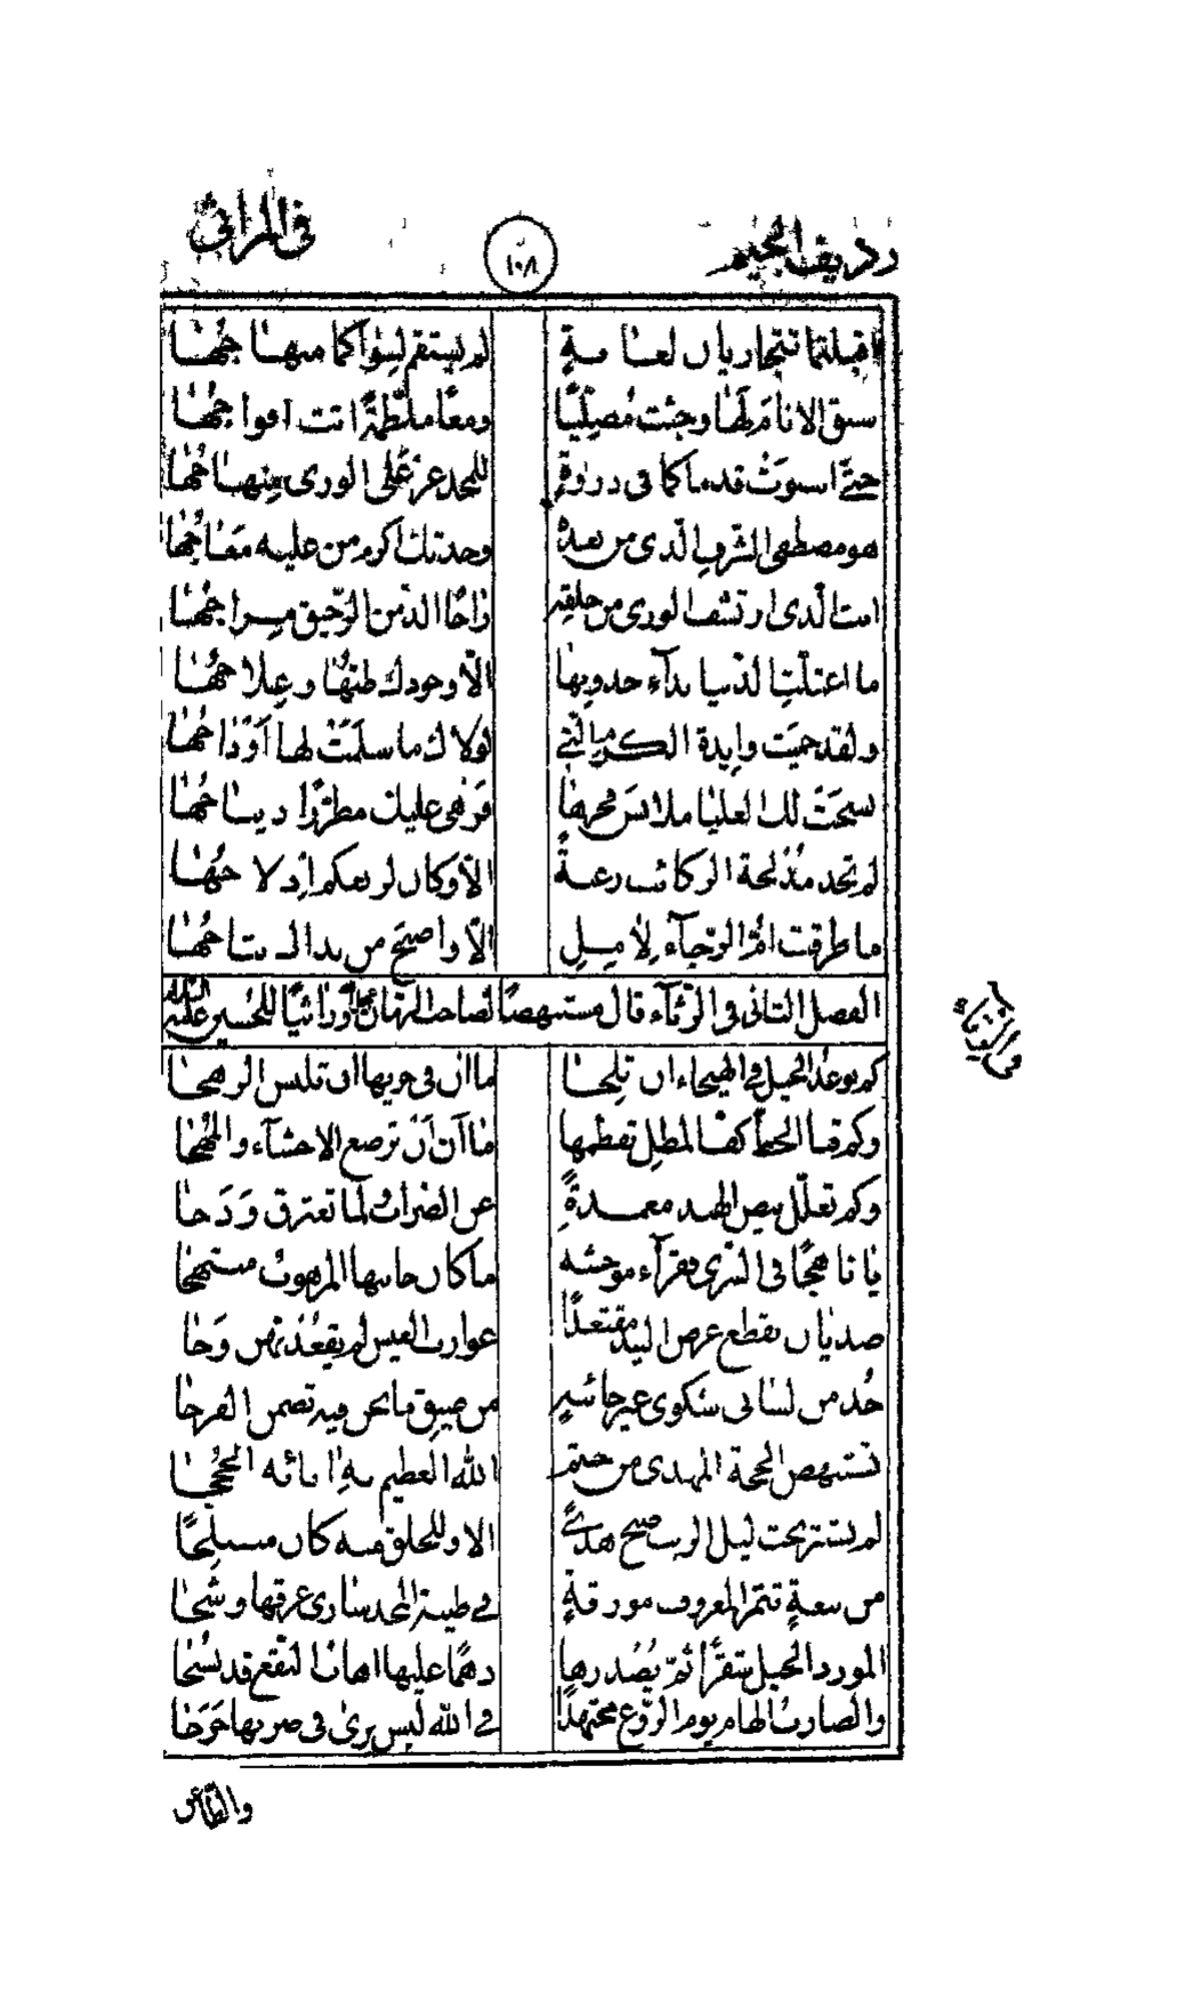 رديف الجيم ١٠٨ في المراثي
اقبلتما تتجاريان لغاية لم يستقم لسواكما منهاجها
سبق الانام لها وجئت مصليا ومعا ملتطمة اتت افواجها
حتى استوت قدماكما في ذروة للمجد عز على الورى
هو مصطفى الشرف الذي من بعده وحدتك اكرم من عليه
انت الذي ارتشف الورى من خلقه راحا الذ من الرحيق مزاجها
ما اعتلت الدنيا بداء جدوبها الا وجودك طبها وعلاجها
ولقد حميت وابدة الكرم التي لولاك ما سلمت لها اوداجها
نسجت لك العليا ملابس فخرها فزهى عليك مطرزا ديباجها
لم تجد مدلجة الركائب رغبة الا وكان لربعكم ادلاجها
ما طرقت ام الرجاء لآمل الا واصبح من نداك نتاجها
الفصل الثاني في الرثاء قال مستنهضا لصاحب الزمان وراثيا للحسين عليه السلام
في الرثاء
كم توعد الخيل في الهيجاء ان تلجا ما آن في جريها ان تلبس الرهجا
وكم قنا الخط كف المطل تفطمها ما آن أن ترضع الاحشاء والمهجا
وكم تعلل بيض الهند مغمدة عن الضراب ولما تعترق ودجا
يا ناهجا في السرى قفراء موحشة ما كان جانبها المرهوب منتهجا
صديان يقطع عرض البيد مقتعدا غوارب العيس لم يقعد بهن وجا
خذ من لساني شكوى غير خائبة من ضيق ما نحن فيه تضمن الفرجا
تستنهض الحجة المهدي من ختم الله العظيم به آبائه الحججا
لم يستتر تحت ليل الريب صبح هدى الا وللخلق منه كان منبلجا
من نبعة تثمر المعروف مورقة في طينة المجد ساري عرقها وشجا
المورد الخيل شقرا ثم يصدرها دهما عليها اهاب النقع قد نسجا
والضارب الهام يوم الروع مجتهدا في الله ليس يرى في ضربها حرجا
والطاعن